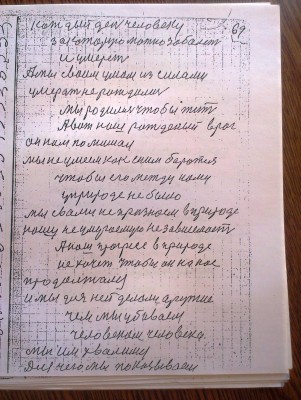 69
каждый ден человеку
за которую можно забалет
и умерет
А мы своим умом и силами
умерат не рождалис
мы родилис чтобы жит
А вот наш рожденый враг
он нам помишал
мы не умеем как сним боротся
чтобы его между нами
уприроде не было
мы свами не признаем в природе
нашу неумираемую независемост
А наш прогрес в природе
не хочет чтобы он нанас
продолжалса
и мы для ней делаем другие
чем мы убиваем
человеком человека
мы им хвалимся
для чего мы показываем